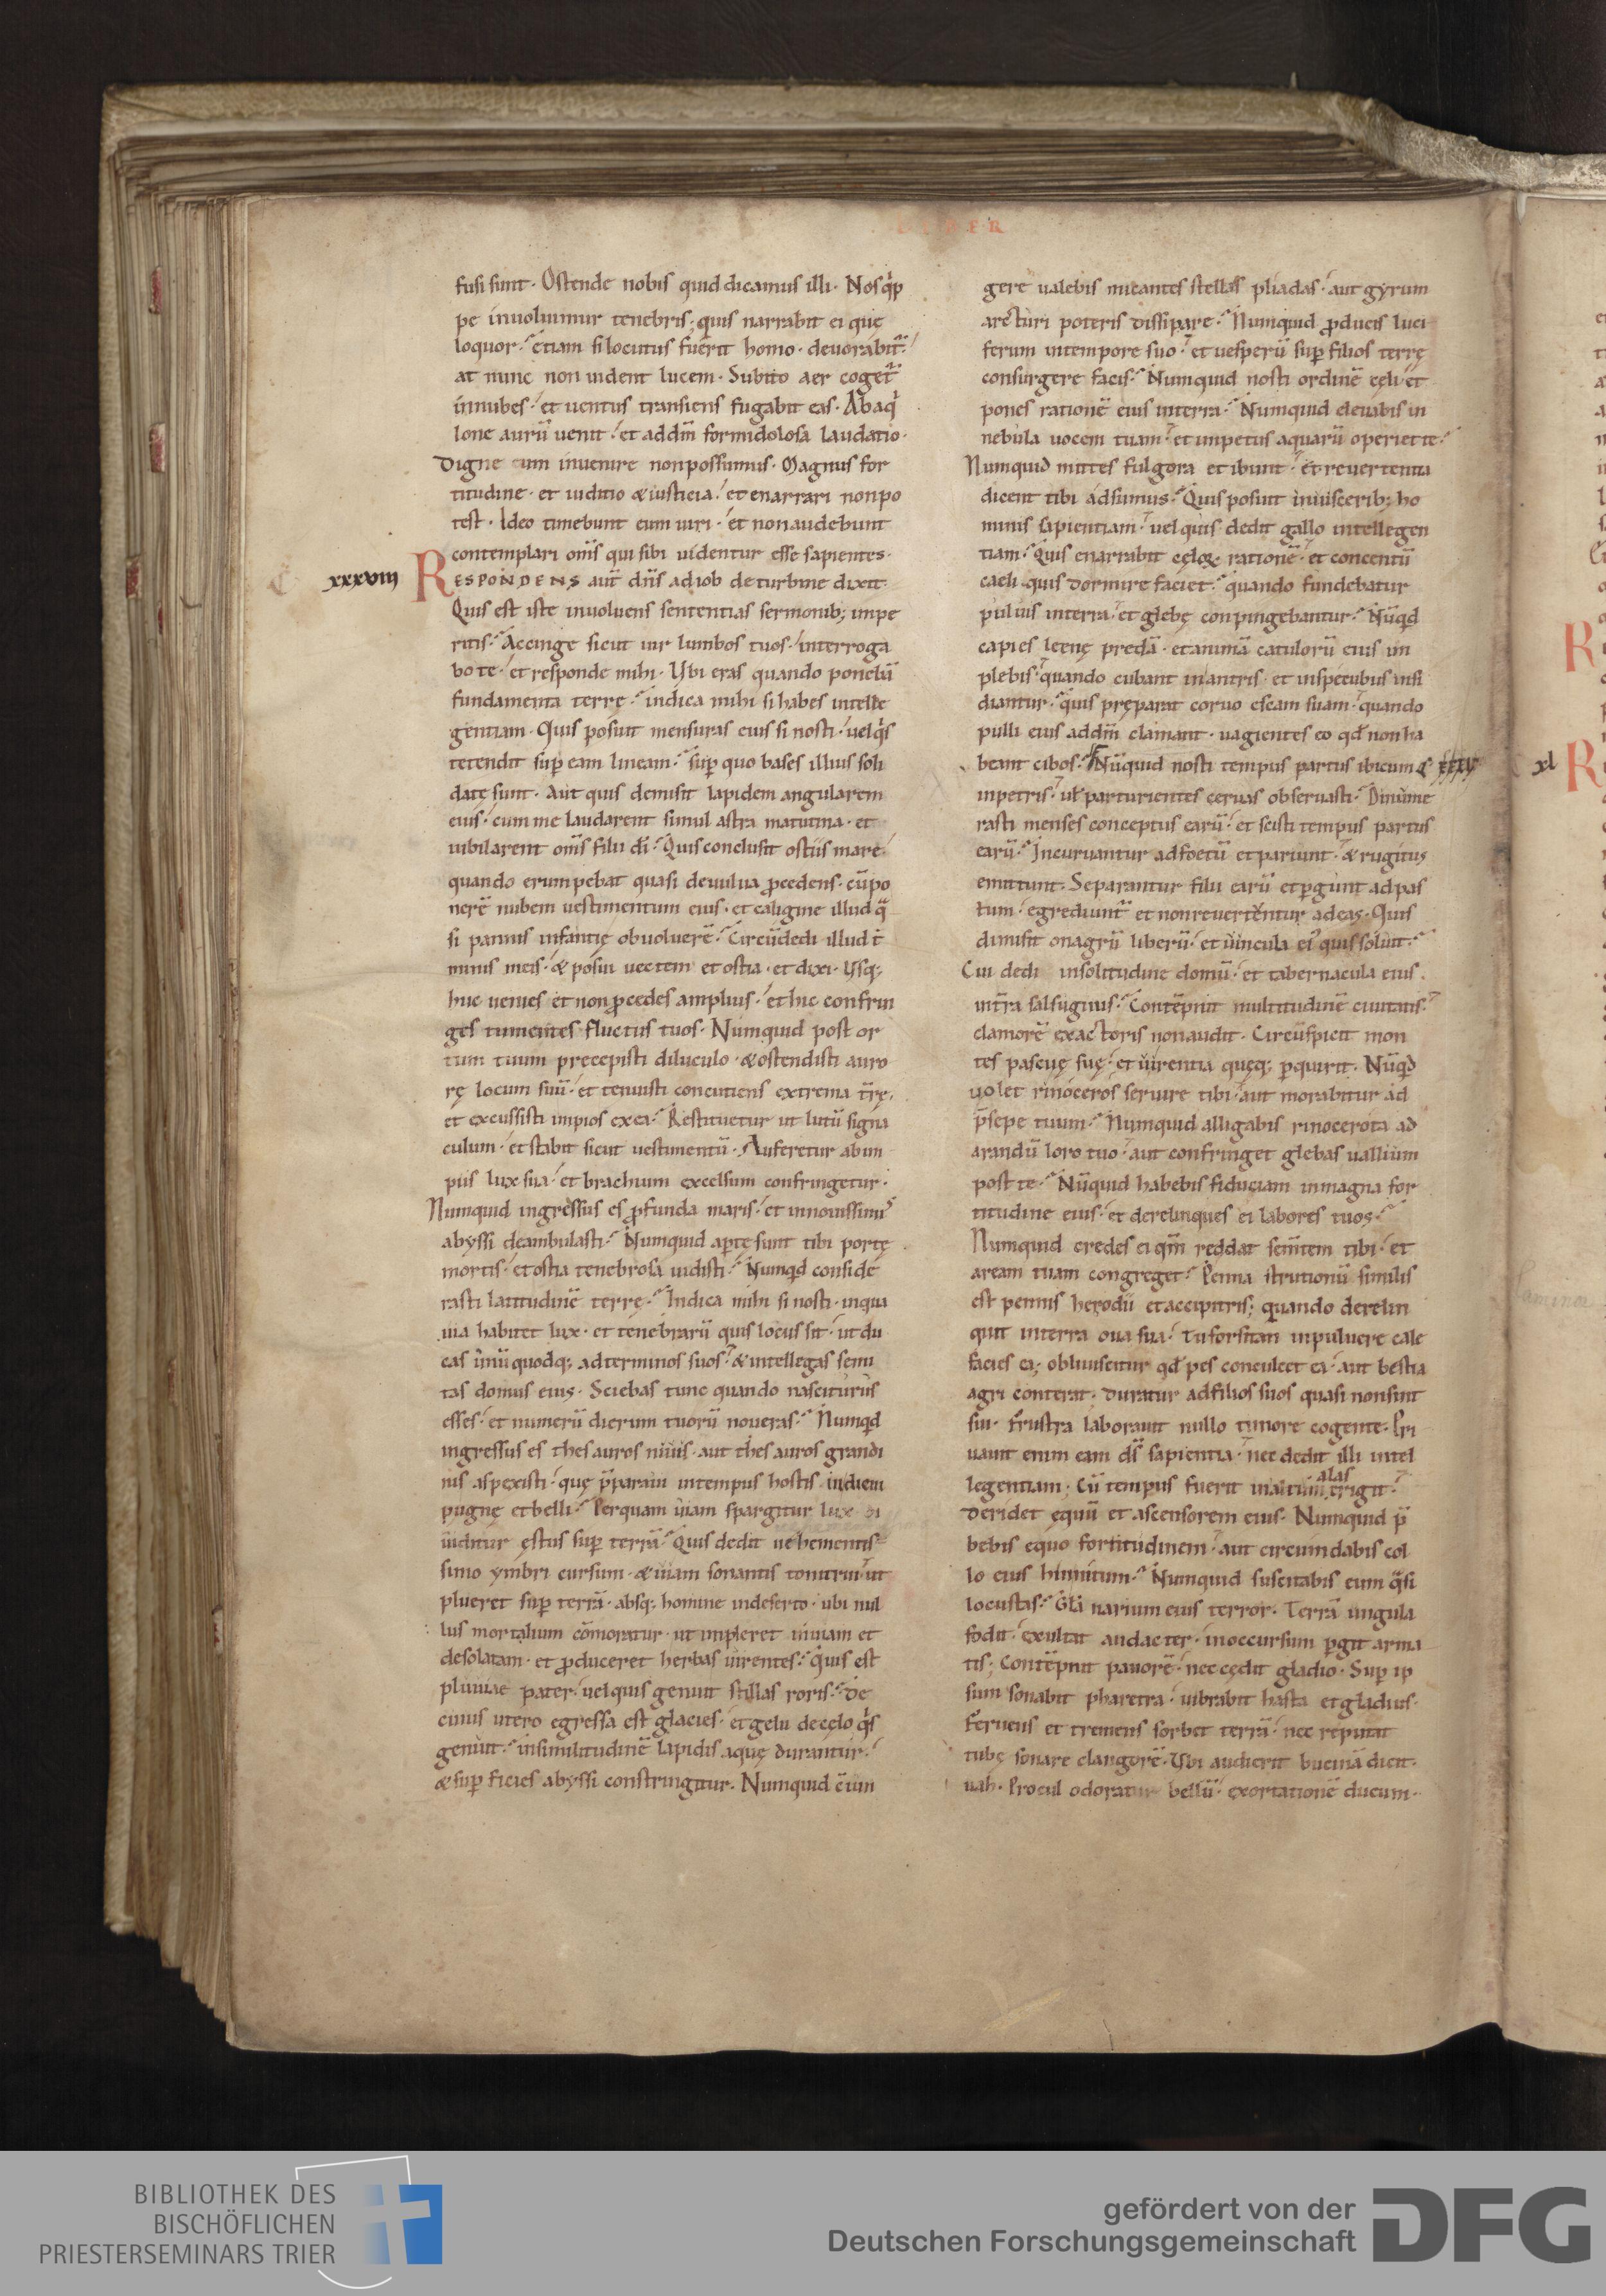 LIBER
fusi sunt· Ostende nobis quid dicamus illi· Nos q̇p
pe inuoluimur tenebris; quis narrabit ei quę
loquor· etiam si locutus fuerit homo· deuorabit᷑·
at nunc non uident lucem· Subito aer coget᷑
in nubes· et uentus transiens fugabit eas· Abaq̇
lone aurū uenit· et ad dm̄ formidolosa laudatio·
Digne eum inuenire non possumus· Magnus for
titudine· et iuditio & iusticia· et enarrari non po
test· Ideo timebunt eum uiri· et non audebunt
contemplari om̄s qui sibi uidentur esse sapientes·
xxxviii RESPONDENS aut̄ dn̄s ad iob de turbine dixit·
Quis est iste inuoluens sententias sermonib; impe
ritis· Accinge sicut uir lumbos tuos· interroga
bo te· et responde mihi· Ubi eras quando ponebā
fundamenta terrę· indica mihi si habes intelle
gentiam· Quis posuit mensuras eius si nosti· uel q̇s
tetendit sup̱ eam lineam· sup̱ quo bases illius soli
datę sunt· Aut quis demisit lapidem angularem
eius· cum me laudarent simul astra matutina· et
iubilarent om̄s filii dī· Quis conclusit ostiis mare·
quando erumpebat quasi de uulua p̱cedens· cū po
nerē nubem uestimentum eius· et caligine illud q̄
si pannis infantię obuoluerē· Circūdedi illud t̄
minis meis· & posui uectem et ostia· et dixi· Usq;
huc uenies et non p̱cedes amplius· et hic confrin
ges tumentes fluctus tuos· Numquid post or
tum tuum precepisti diluculo· & ostendisti auro
rę locum suū· et tenuisti concutiens extrema t̄rę·
et excussisti impios ex ea· Restituetur ut lutū signa
culum· et stabit sicut uestimentū· Auferetur ab im
piis lux sua· et brachium excelsum confringetur·
Numquid ingressus es p̱funda maris· et in nouissimis
abyssi deambulasti· Numquid ap̱tę sunt tibi portę
mortis· et ostia tenebrosa uidisti· Numq̇d conside
rasti latitudinē terrę· Indica mihi si nosti· in qua
uia habitet lux· et tenebrarū quis locus sit· ut du
cas unū quodq; ad terminos suos· & intellegas semi
tas domus eius· Sciebas tunc quando nasciturus
esses· et numerū dierum tuorū noueras· Numq̇d
ingressus es thesauros niuis· aut thesauros grandi
nis aspexisti· quę p̄paraui in tempus hostis in diem
pugnę et belli· Per quam uiam spargitur lux· di
uiditur ęstus sup̱ terrā· Quis dedit uehementis
simo ymbri cursum· & uiam sonantis tonitrui· ut
plueret sup̱ terrā· absq; homine in deserto· ubi nul
lus mortalium cōmoratur· ut impleret inuiam et
desolatam· et p̱duceret herbas uirentes· Quis est
pluuiae pater· uel quis genuit stillas roris· De
cuius utero egressa est glacies· et gelu de cęlo q̇s
genuit· in similitudinē lapidis aquę durantur·
& sup̱ficies abyssi constringitur· Numquid c̄iun
gere ualebis micantes stellas pliadas· aut gyrum
arcturi poteris dissipare· Numquid p̱ducis luci
ferum in tempore suo· et uesperū sup̱ filios terrę
consurgere facis· Numquid nosti ordinē cęli· et
pones rationē eius in terra· Numquid eleuabis in
nebula uocem tuam· et impetus aquarū operiet te·
Numquid mittes fulgora et ibunt· et reuertentia
dicent tibi adsumus· Quis posuit in uiscerib; ho
minis sapientiam· uel quis dedit gallo intellegen
tiam· Quis enarrabit cęloꝝ rationē· et concentū
caeli quis dormire faciet· quando fundebatur
puluis in terra· et glebę conpingebantur· Nūq̇d
capies leenę predā· et animā catulorū eius im
plebis· quando cubant in antris· et in specubus insi
diantur· quis pręparat coruo escam suam· quando
pulli eius ad dm̄ clamant· uagientes eo qđ non ha
beant cibos· Nūquid nosti tempus partus ibicum
in petris· uł parturientes ceruas obseruasti· Dinume
rasti menses conceptus earū· et scisti tempus partus
earū· Incuruantur ad foetū et pariunt· & rugitus
emittunt· Separantur filii earū et p̱gunt ad pas
tum· egrediunt᷑ et non reuertentur ad eas· Quis
dimisit onagrū liberū· et uincula ei' quis soluit·
Cui dedi in solitudine domū· et tabernacula eius
in t̄ra salsuginis· Contēpnit multitudinē ciuitatis·
clamorē exactoris non audit· Circūspicit mon
tes pascuę suę· et uirentia quęq; p̱quirit· Nūq̇d
uolet rinoceros seruire tibi· aut morabitur ad
p̄sepe tuum· Numquid alligabis rinocerota ad
arandū loro tuo· aut confringet glebas uallium
post te· Nūquid habebis fiduciam in magna for
titudine eius· et derelinques ei labores tuos·
Numquid credes ei qm̄ reddat sem̄tem tibi· et
aream tuam congreget· Penna strutionū similis
est pennis herodii et accipitris; quando derelin
quit in terra oua sua· Tu forsitan in puluere cale
facies ea; obliuiscitur qđ pes conculcet ea· aut bestia
agri conterat· Duratur ad filios suos quasi non sint
sui· Frustra laborauit nullo timore cogente· Pri
uauit enim eam ds̄ sapientia· nec dedit illi intel
legentiam· Cū tempus fuerit in altum alas erigit·
Deridet equū et ascensorem eius· Numquid p̄
bebis equo fortitudinem· aut circumdabis col
lo eius hinnitum· Numquid suscitabis eum q̄si
locustas· Gła narium eius terror· Terrā ungula
fodit· exultat audacter· in occursum p̱git arma
tis; Contēpnit pauorē· nec cędit gladio· Sup̱ ip
sum sonabit pharetra· uibrabit hasta et gladius·
Feruens et tremens sorbet terrā· nec reputat
tubę sonare clangorē· Ubi audierit bucinā dicit·
uah· Procul odoratur bellū· exortationē ducum·
xl
BIBLIOTHEK DES
BISCHÖFLICHEN
PRIESTERSEMINARS TRIER
gefördert von der
Deutschen Forschungsgemeinschaft
DFG